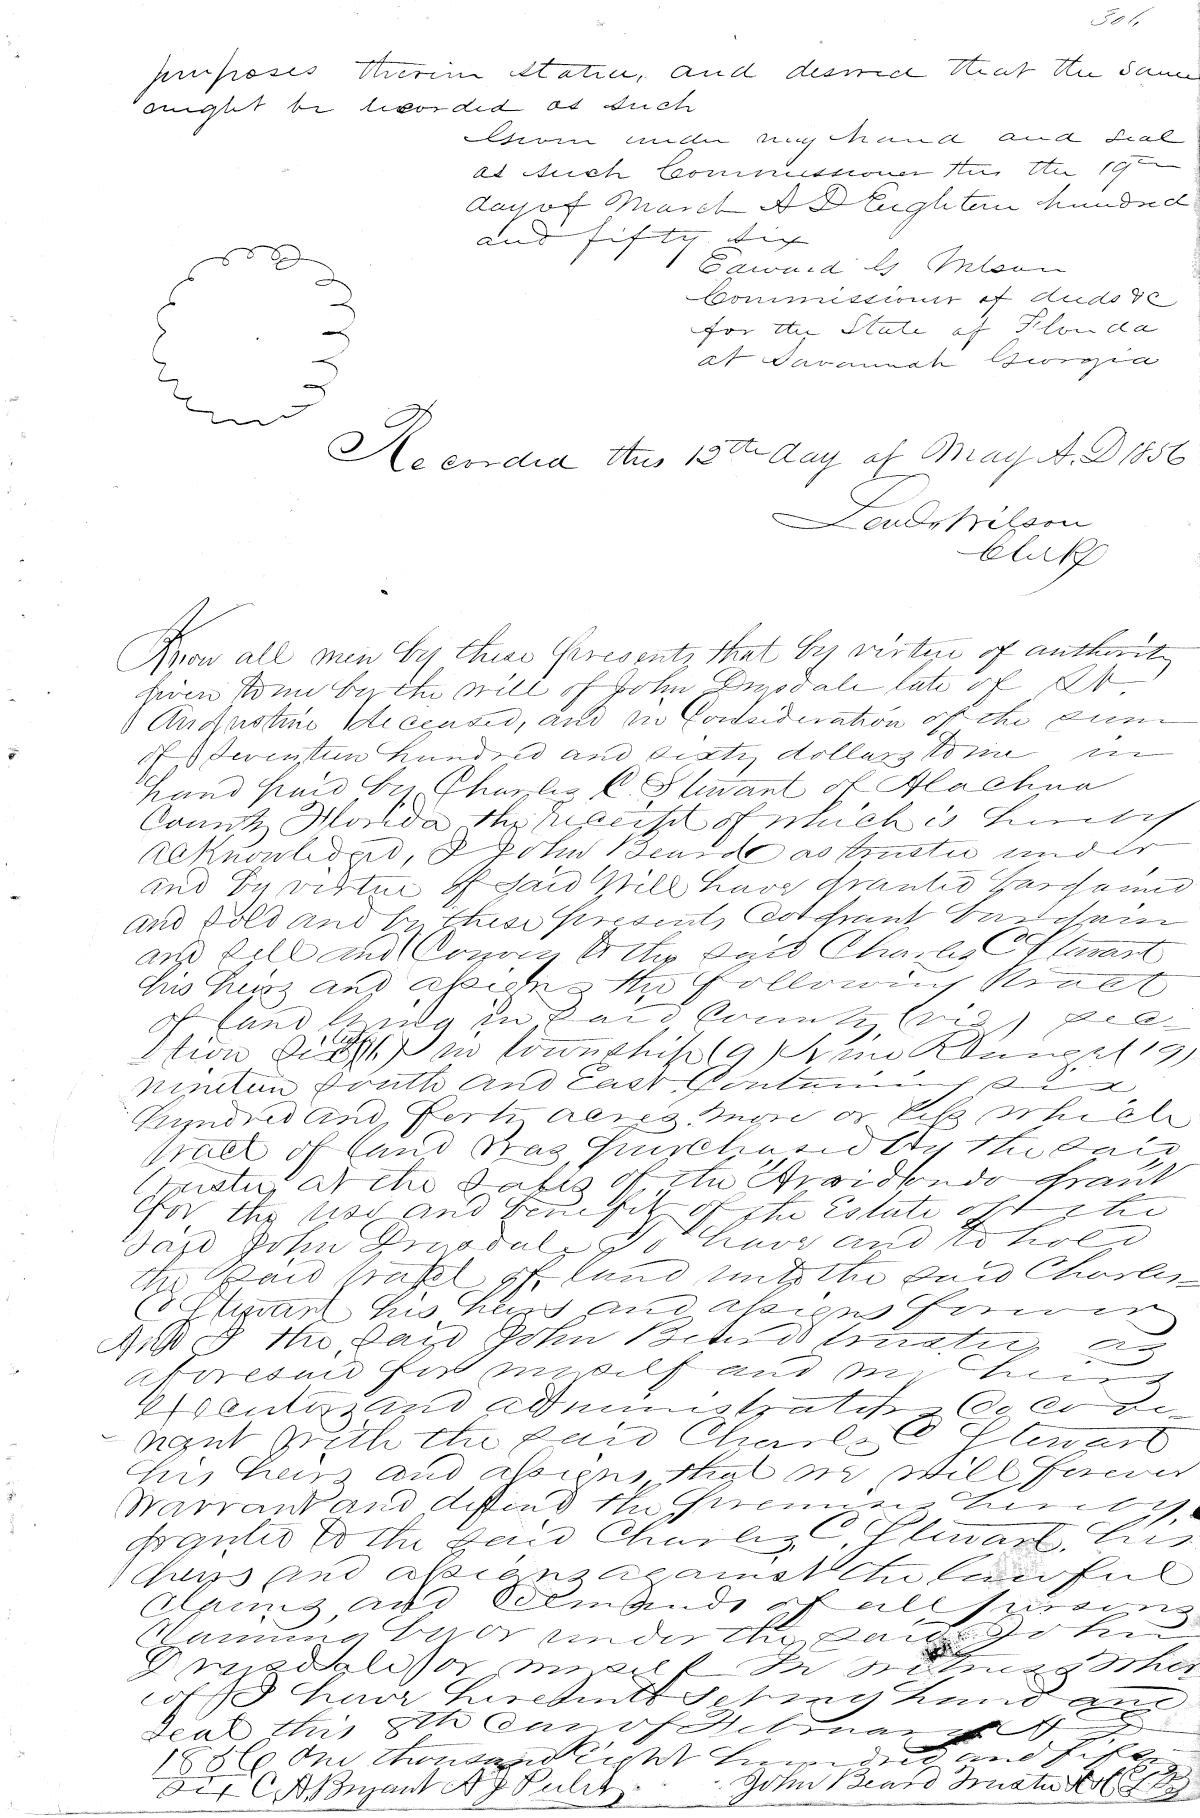 306
purposes therein stated, and desired that the same
might be recorded as such
Given under my hand and seal
as such Commissioner this the 19th
day of March A D Eighteen hundred
and fifty six
Edward G Wilson
Commissioner of deeds &c
for the State of Florida
at Savannah Georgia
Recorded this 12th day of May A. D 1856
Wilson
Clerk
Know all men by these presents that by virtue of authority
given to me by the will of John Drysdale late of St.
Augustine deceased, and in Consideration of the sum
of Seventeen hundred and sixty dollars to me in
hand paid by Charles C. Stewart of Alachua
County Florida the receipt of which is hereby
acknowledged, I John Beard as trustee under
and by virtue of said Will have granted bargained
and sold and by these presents do grant bargain
and sell and Convey to the said Charles C Stewart
his heirs and assigns the following tract
of land lying in said County (viz) sec-
tion in township (9) Nine Range (19)
nineteen South and East. Containing six
hundred and forty acres more or less which
tract of land was purchased by the said
trustee at the sales of the Arridondo grant
for the use and benefit of the Estate of the
said John Drysdale To have and to hold
the said tract of land unto the said Charles
C Stewart his heirs and assigns forever
And I the said John Beard trustee as
aforesaid for myself and my heirs
executors and administrators do cove-
nant with the said Charles C Stewart
his heirs and assigns that we will forever
Warrant and defend the premises hereby
granted to the said Charles C. Stewart, his
heirs and assigns against the lawful
claims and demands of all persons
claiming by or under the said John
Drysdale or myself In witness wher
eof I have hereunto set my hand and
seal this 8th day of February A D
1856 One thousand eight hundred and fifty
six C. A. Bryant A J Peeler John Beard Trustee